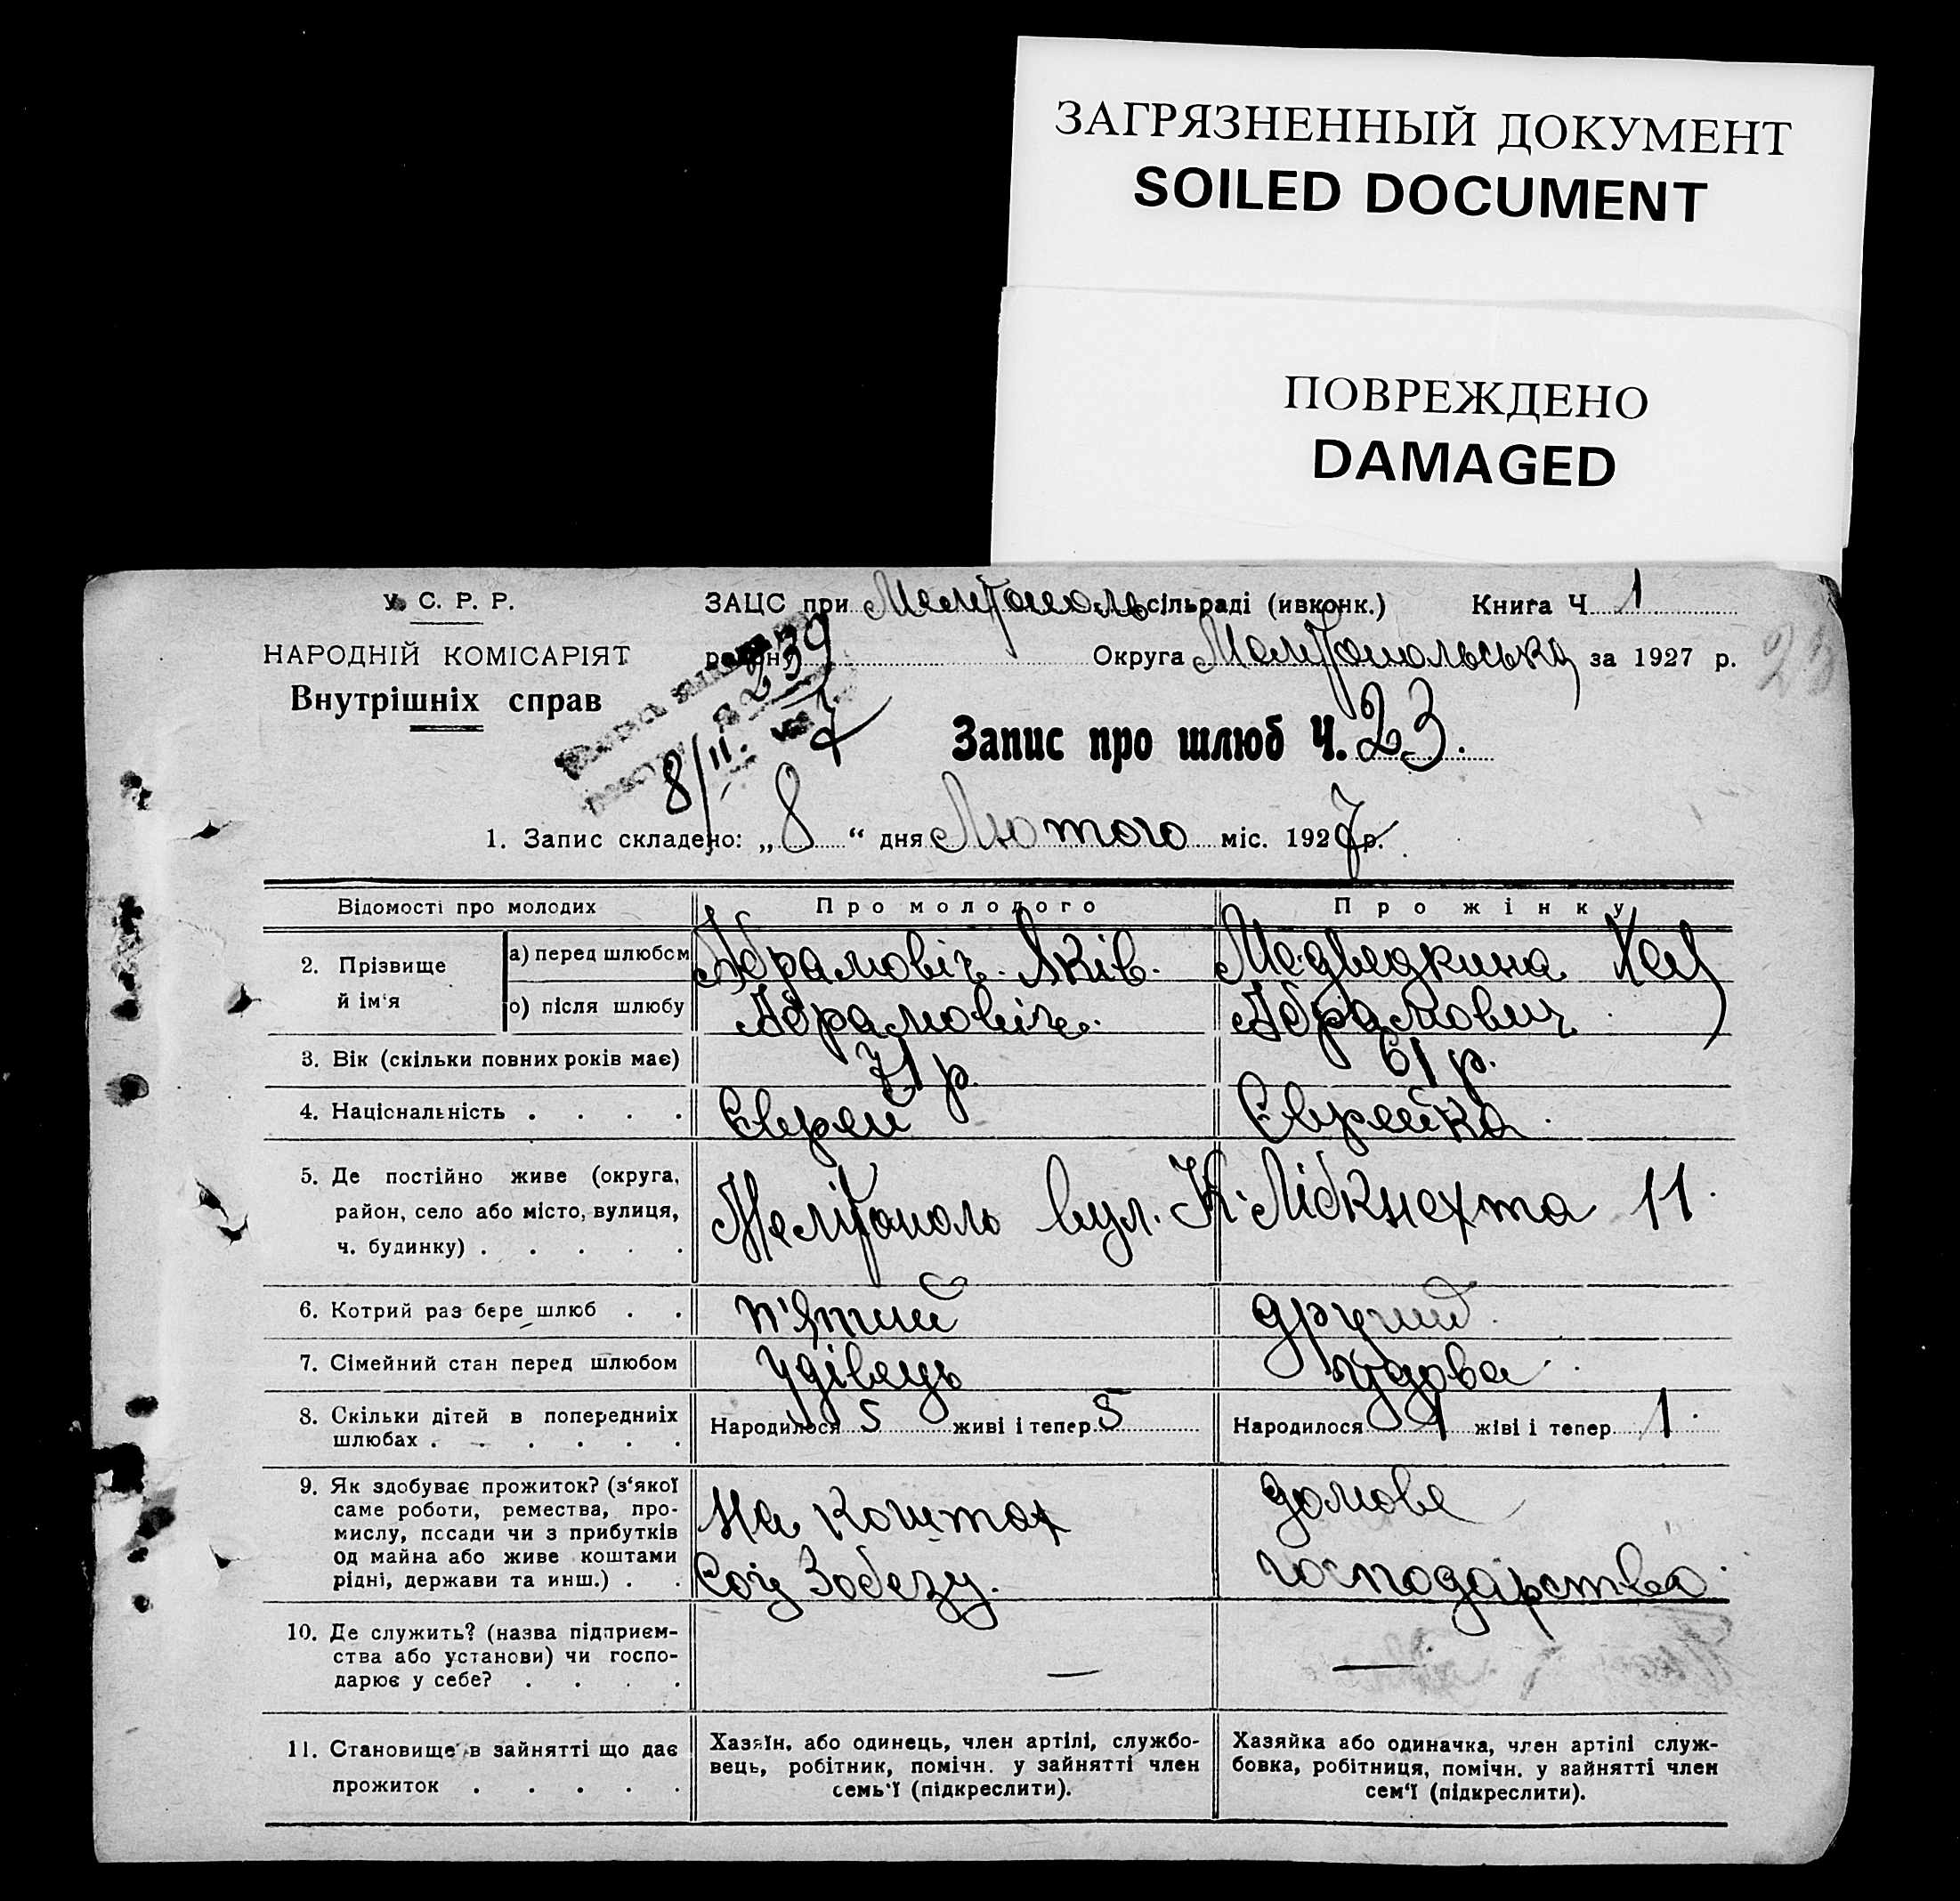 ЗАГРЯЗНЕННЫЙ ДОКУМЕНТ
SOILED DOCUMENT
ПОВРЕЖДЕНО
DAMAGED
У. С. Р. Р.
НАРОДНІЙ КОМІСАРІЯТ
Внутрішніх справ
ЗАЦС при Мелітополь сільраді (ивконк.) Книга Ч 1
район Округа Мелітопольська за 1927 р.
23
239
8/II 7
Запис про шлюб Ч. 23.
1. Запис складено: „ 8 “ дня Лютого міс. 1927 р.
Відомості про молодих Про молодого Про жінку
2. Прізвище й ім'я а) перед шлюбом Абрамовіч Яків. Медведкина Хая
о) після шлюбу Абрамовіч. Абрамович
3. Вік (скільки повних років має) 71 р. 61 р.
4. Національність . . . . Єврей Єврейка
5. Де постійно живе (округа,
район, село або місто, вулиця,
ч. будинку) . . . . . Мелітополь вул. К. Лібкнехта 11
6. Котрий раз бере шлюб . . п'ятий другий
7. Сімейний стан перед шлюбом удівець удова
8. Скільки дітей в попередниіх
шлюбах . . . . . . Народилося 5 живі і тепер 5 Народилося 1 жіві і тепер 1
9. Як здобуває прожиток? (з‘якої
саме роботи, ремества, про-
мислу, посади чи з прибутків
од майна або живе коштами
рідні, держави та инш.) . .
На коштах
Соц Забезу.
домове
господарство
10. Де служить? (назва підприєм-
ства або установи) чи госпо-
дарює у себе? . . . . — —
11. Становище в зайнятті що дає
прожиток . . . . .
Хазяїн, або одинець, член артілі, службо-
вець, робітник, помічн. у зайнятті член
семь‘ї (підкреслити).
Хазяйка або одиначка, член артілі служ-
бовка, робітниця, помічн. у зайнятті член
сем‘ї (підкреслити).